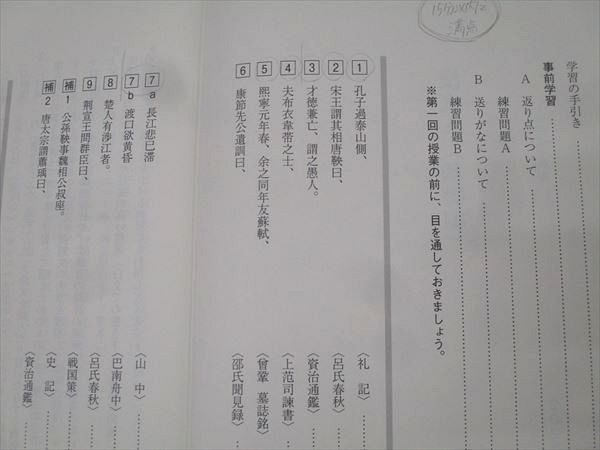 満点
学習の手引き……………………
事前学習……………………
A 返り点について……………………
練習問題A……………………
B 送りがなについて……………………
練習問題B……………………
※第一回の授業の前に、目を通しておきましょう。
1 孔子過泰山側、〈礼記〉……
2 宋王謂其相唐鞅曰、〈呂氏春秋〉……
3 才徳兼亡、謂之愚人。〈資治通鑑〉……
4 夫布衣韋帯之士、〈上范司諫書〉……
5 熙寧元年春、余之同年友蘇軾、〈曾鞏 墓誌銘〉……
6 康節先公遺訓曰、〈邵氏聞見録〉……
7a 長江悲已滞〈山中〉……
7b 渡口欲黄昏〈巴南舟中〉……
8 楚人有渉江者。〈呂氏春秋〉……
9 荆宣王問群臣曰、〈戦国策〉……
補1 公孫鞅事魏相公叔座。〈史記〉……
補2 唐太宗謂蕭瑀曰、〈資治通鑑〉……